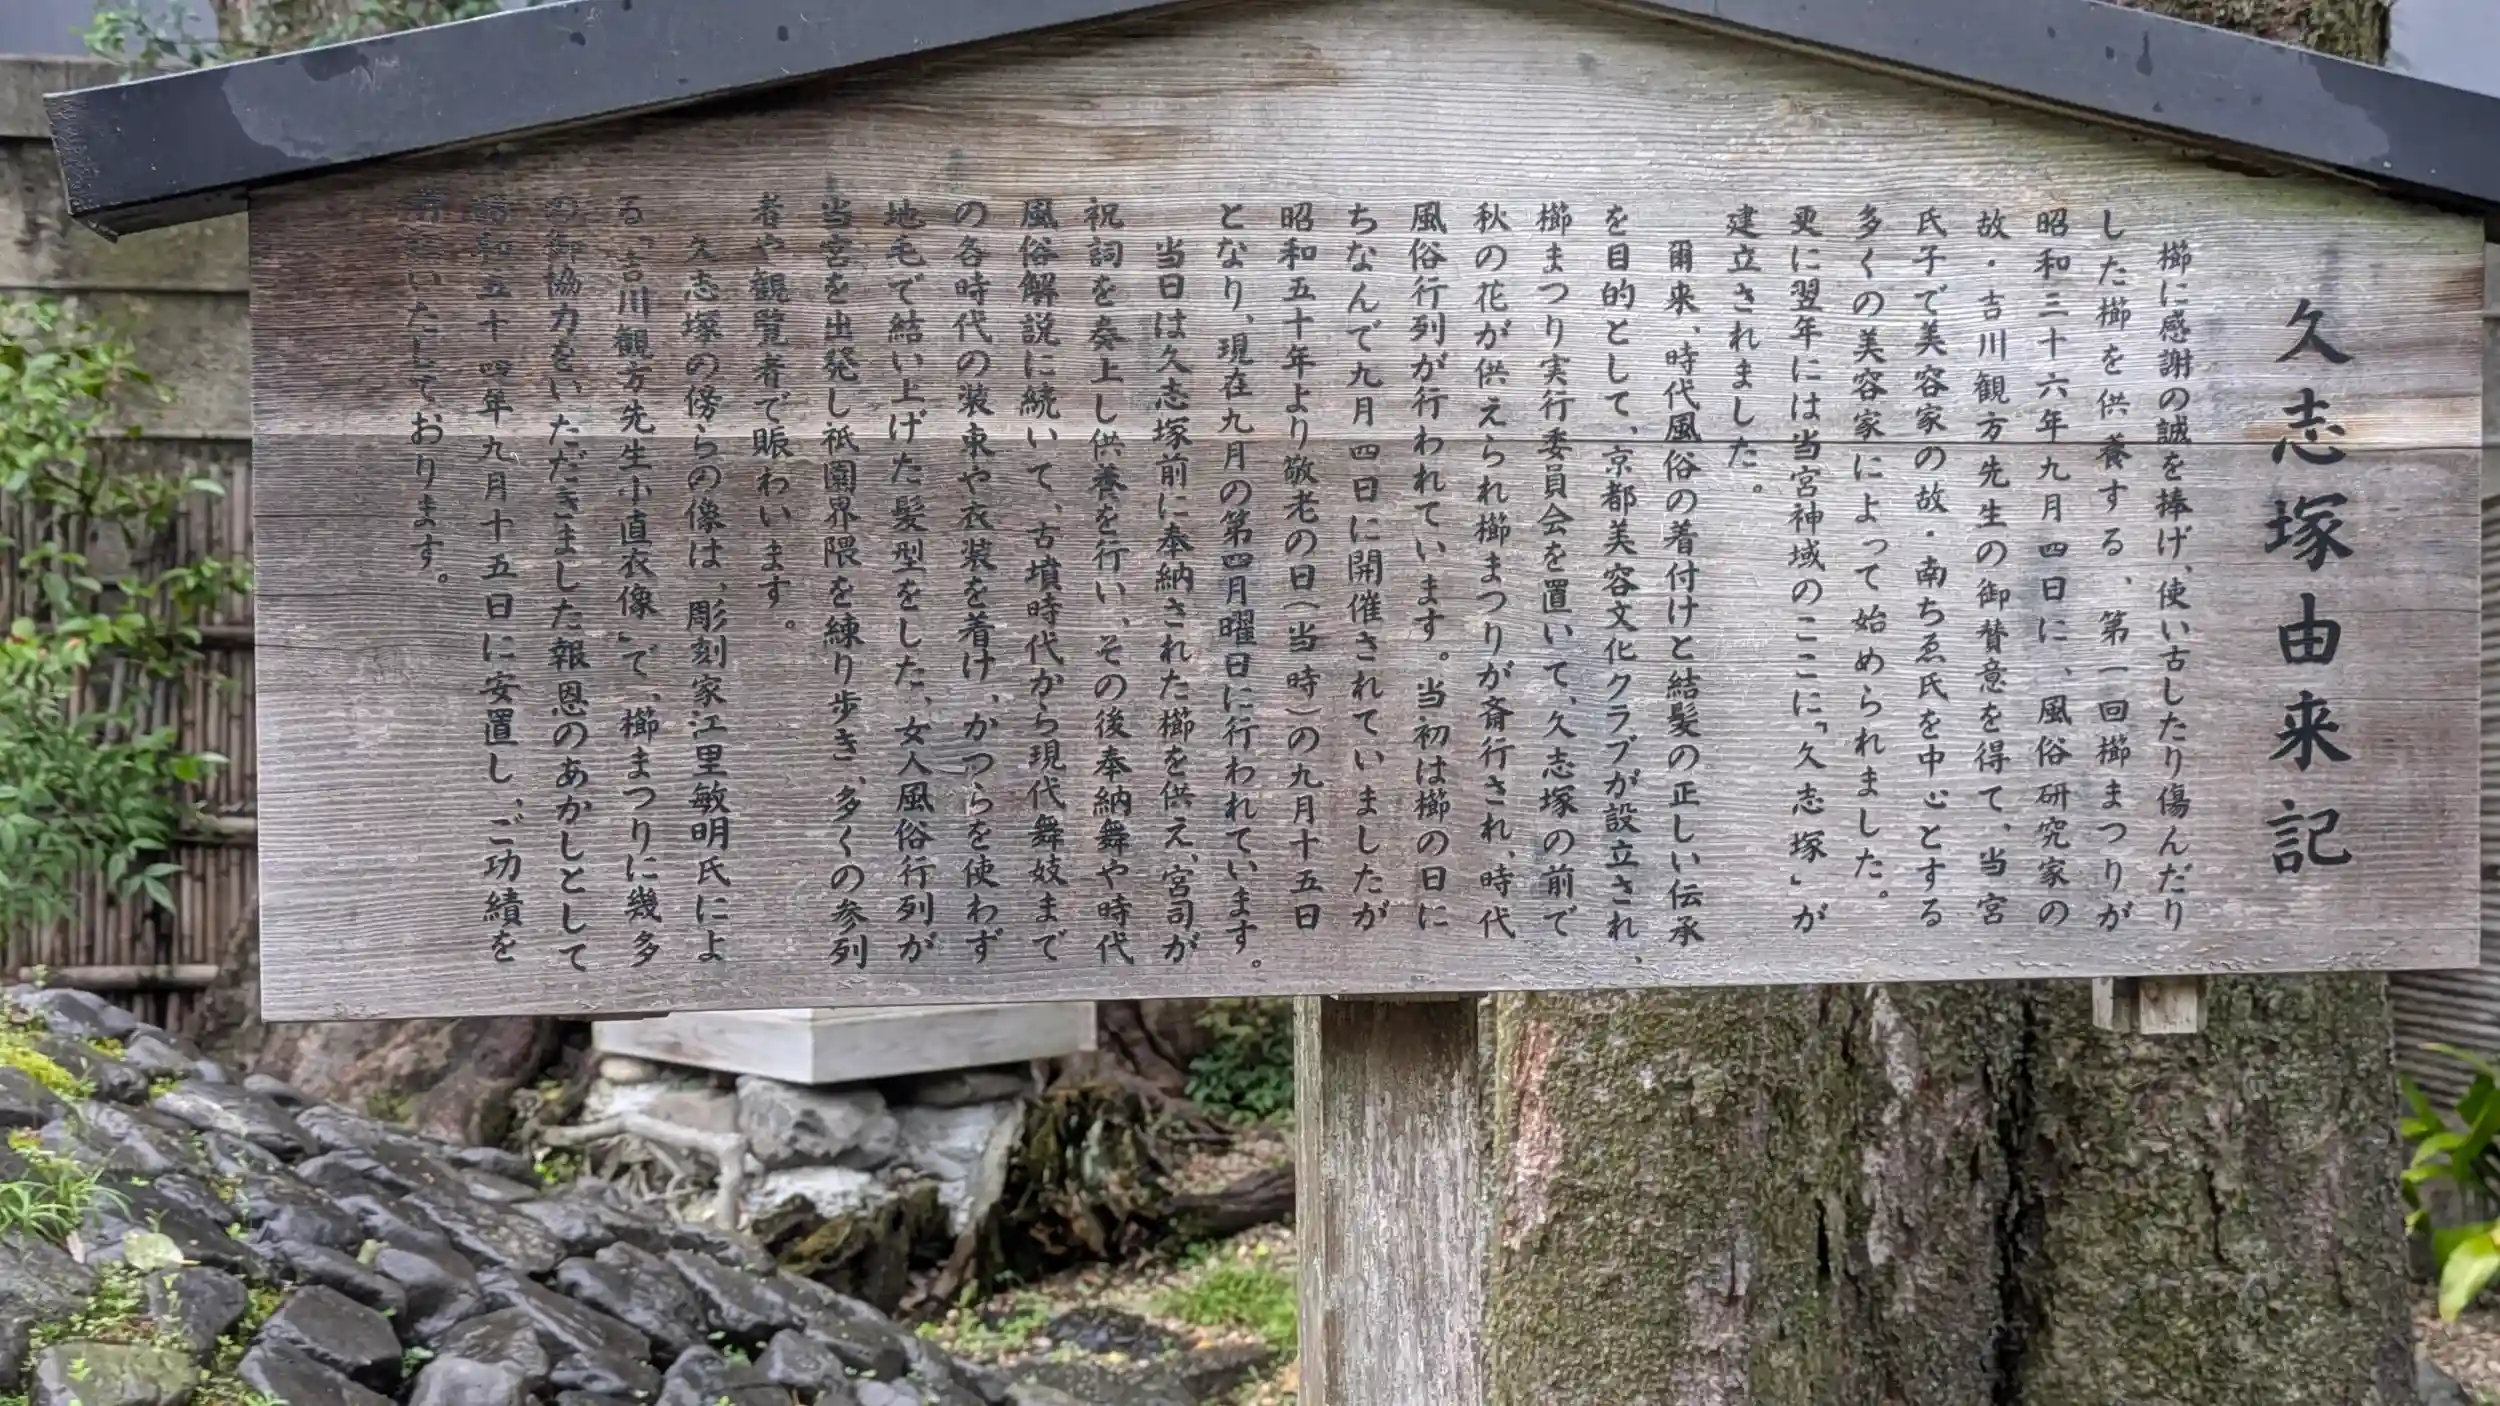 久志塚由来記
櫛に感謝の誠を捧げ、使い古したり傷んだり
した櫛を供養する、第一回櫛まつりが
昭和三十六年九月四日に、風俗研究家の
故・吉川観方先生の御賛意を得て、当宮
氏子で美容家の故・南ちゑ氏を中心とする
多くの美容家によって始められました。
更に翌年には当宮神域のここに「久志塚」が
建立されました。
爾来、時代風俗の着付けと結髪の正しい伝承
を目的として、京都美容文化クラブが設立され、
櫛まつり実行委員会を置いて、久志塚の前で
秋の花が供えられ櫛まつりが斎行され、時代
風俗行列が行われています。当初は櫛の日に
ちなんで九月四日に開催されていましたが
昭和五十年より敬老の日(当時)の九月十五日
となり、現在九月の第四月曜日に行われています。
当日は久志塚前に奉納された櫛を供え、宮司が
祝詞を奏上し供養を行い、その後奉納舞や時代
風俗解説に続いて、古墳時代から現代舞妓まで
の各時代の装束や衣装を着け、かつらを使わず
地毛で結い上げた髪型をした、女人風俗行列が
当宮を出発し祇園界隈を練り歩き、多くの参列
者や観覧者で賑わいます。
久志塚の傍らの像は、彫刻家江里敏明氏によ
る「吉川観方先生小直衣像」で、櫛まつりに幾多
の御協力をいただきました報恩のあかしとして
昭和五十四年九月十五日に安置し、ご功績を
いたしております。